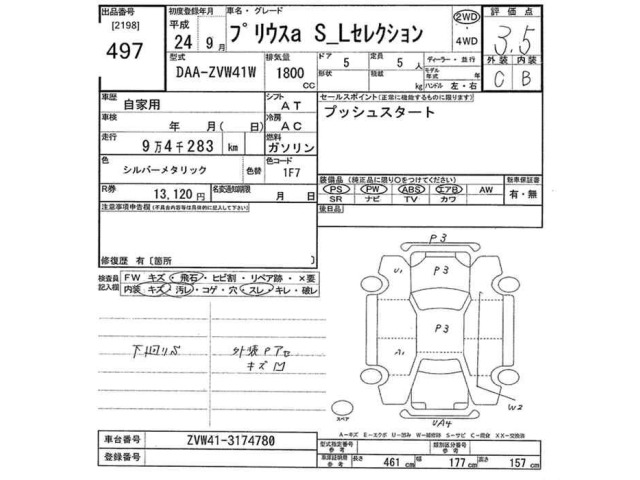 出品番号 初度登録年月 車名・グレード 評価点
[2198] 平成 プリウスa S_Lセレクション 2WD ・4WD 3.5
497 24年9月
型式 排気量 ドア 定員 ディーラー・並行 外装 内装
DAA-ZVW41W 1800 CC 5 5人 モデル年式 年 C B
形状 積載 kg ハンドル 左・右
車歴 自家用 シフト AT セールスポイント(正常に機能するものに限ります)
車検 年 月( 日) 冷房 AC プッシュスタート
走行 9万4千283 km 燃料 ガソリン
色 シルバーメタリック 色替 色コード 1F7
装備品 (純正品に限り○をつけてください) 新車保証書
R券 13,120円 名変通知期限 月 日 PS PW ABS エアB AW 有・無
SR ナビ TV カワ
注意事項申告欄(不具合内容等は具体的に記入して下さい) 後日品
修復歴 有〔箇所 〕
検査員記入欄 FW キズ・飛石・ヒビ割・リペア跡・×要
内装 キズ・汚レ・コゲ・穴・スレ・キレ・破レ
P3
U1
P3
P3
A1
W2
UA4
下回りS
外張Pアセ
キズ凹
スペア
A-キズ E-エクボ U-凹み W-補修跡 S-サビ C-腐食 XX-交換済
車台番号 ZVW41-3174780 型式指定番号 参考 類別区分番号 参考
登録番号 車庫証明用 参考 長さ 461cm 幅 177cm 高さ 157cm